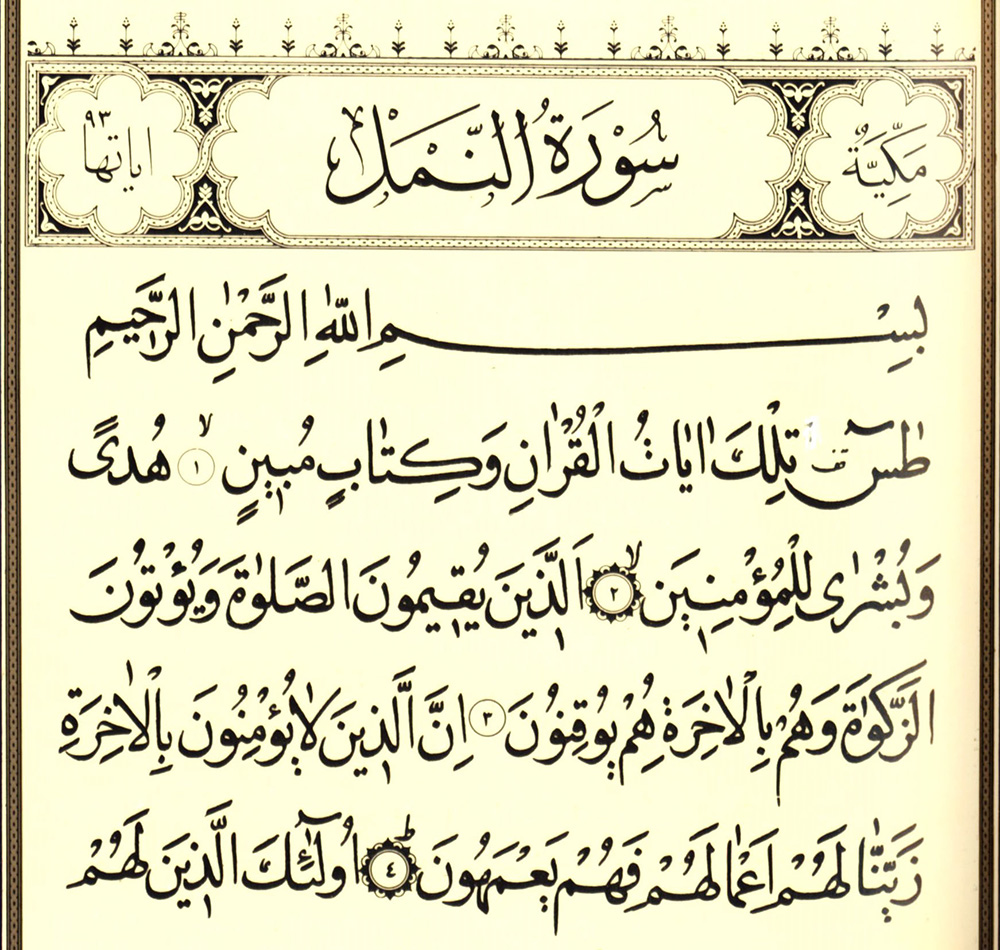 مَكِّيَّةٌ
سُوْرَةُ النَّمْلِ
اٰيَاتُهَا ٩٣
بِسْمِ اللّٰهِ الرَّحْمٰنِ الرَّحِيمِ
طٰسٓ تِلْكَ اٰيَاتُ الْقُرْاٰنِ وَكِتَابٍ مُبِينٍ ١ هُدًى
وَبُشْرٰى لِلْمُؤْمِنِينَ ٢ اَلَّذِينَ يُقِيمُونَ الصَّلٰوةَ وَيُؤْتُونَ
الزَّكٰوةَ وَهُمْ بِالْاٰخِرَةِ هُمْ يُوقِنُونَ ٣ اِنَّ الَّذِينَ لَا يُؤْمِنُونَ بِالْاٰخِرَةِ
زَيَّنَّا لَهُمْ اَعْمَالَهُمْ فَهُمْ يَعْمَهُونَ ٤ اُولٰٓئِكَ الَّذِينَ لَهُمْ